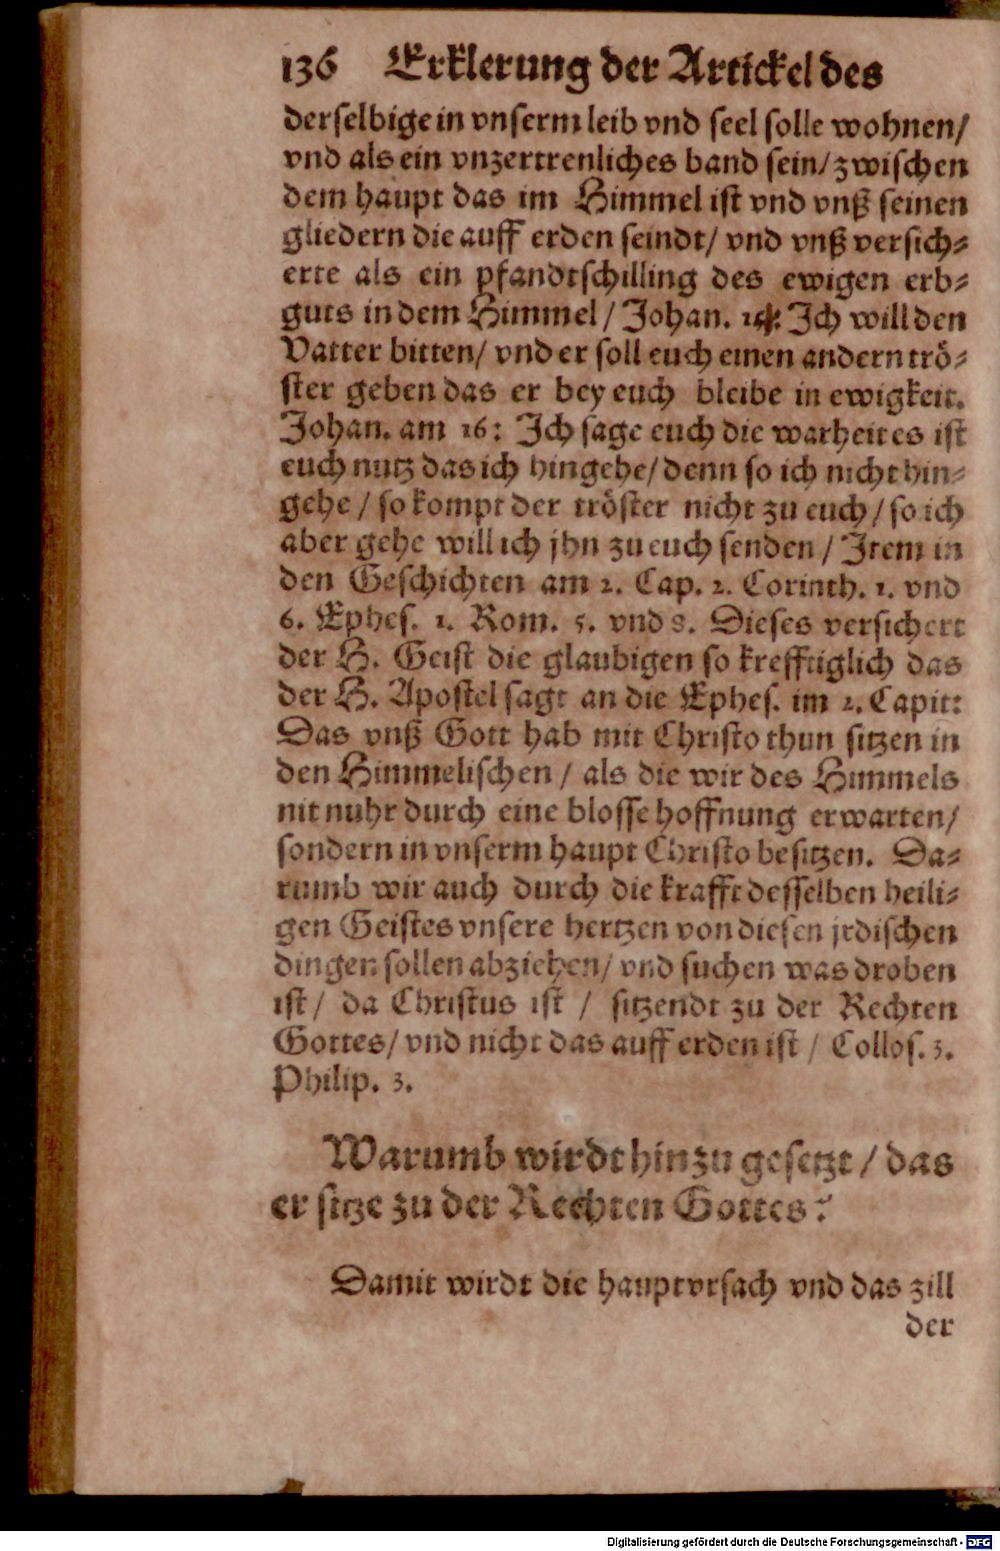 136 Erklerung der Artickel des
derselbige in vnserm leib vnd seel solle wohnen/
vnd als ein vnzertrenliches band sein/ zwischen
dem haupt das im Himmel ist vnd vnß seinen
gliedern die auff erden seindt/ vnd vnß versich⸗
erte als ein pfandtschilling des ewigen erb⸗
guts in dem Himmel / Johan. 14: Ich will den
Vatter bitten/ vnd er soll euch einen andern trö⸗
ster geben das er bey euch bleibe in ewigkeit.
Johan. am 16: Ich sage euch die warheit es ist
euch nutz das ich hingehe/ denn so ich nicht hin⸗
gehe / so kompt der tröster nicht zu euch / so ich
aber gehe will ich jhn zu euch senden / Item in
den Geschichten am 2. Cap. 2. Corinth. 1. vnd
6. Ephes. 1. Rom. 5. vnd 8. Dieses versichert
der H. Geist die glaubigen so krefftiglich das
der H. Apostel sagt an die Ephes. im 2. Capit:
Das vnß Gott hab mit Christo thun sitzen in
den Himmelischen / als die wir des Himmels
nit nuhr durch eine blosse hoffnung erwarten/
sondern in vnserm haupt Christo besitzen. Da⸗
rumb wir auch durch die krafft desselben heili⸗
gen Geistes vnsere hertzen von diesen jrdischen
dingen sollen abziehen/ vnd suchen was droben
ist / da Christus ist / sitzendt zu der Rechten
Gottes/ vnd nicht das auff erden ist / Collos. 3.
Philip. 3.
Warumb wirdt hinzu gesetzt / das
er sitze zu der Rechten Gottes?
Damit wirdt die hauptvrsach vnd das zill
der
Digitalisierung gefördert durch die Deutsche Forschungsgemeinschaft - DFG